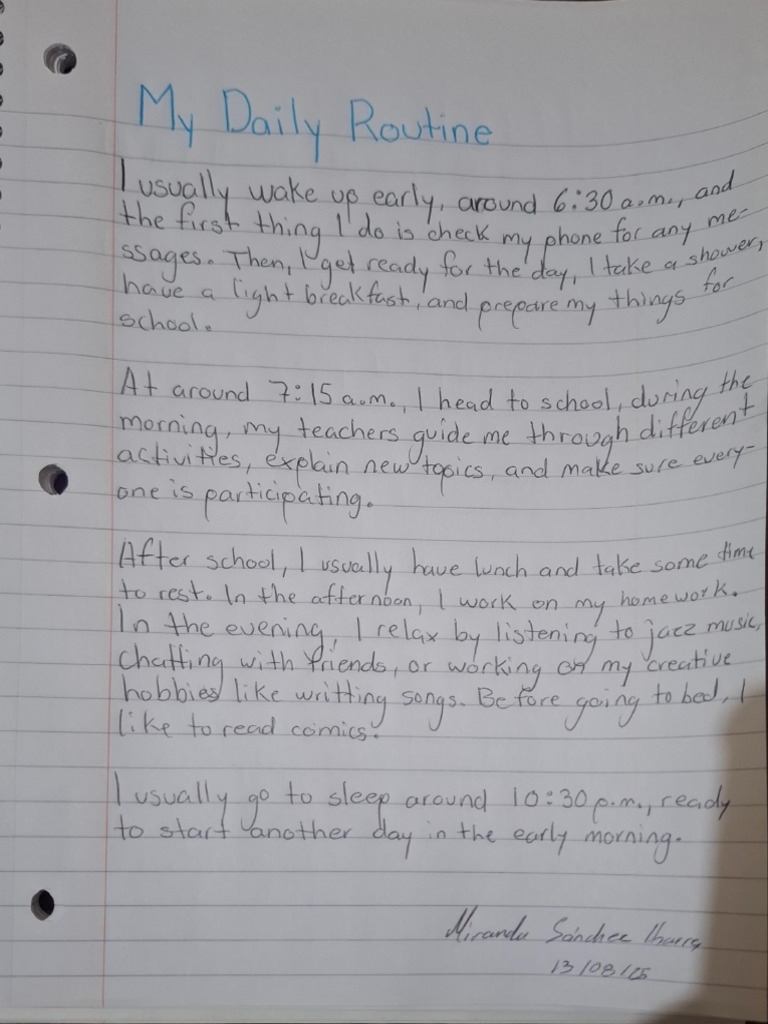 My Daily Routine
I usually wake up early, around 6:30 a.m., and
the first thing I do is check my phone for any me-
ssages. Then, I get ready for the day, I take a shower,
have a light breakfast, and prepare my things for
school.
At around 7:15 a.m., I head to school, during the
morning, my teachers guide me through different
activities, explain new topics, and make sure every-
one is participating.
After school, I usually have lunch and take some time
to rest. In the afternoon, I work on my homework.
In the evening, I relax by listening to jazz music,
chatting with friends, or working on my creative
hobbies like writting songs. Before going to bed, I
like to read comics.
I usually go to sleep around 10:30 p.m., ready
to start another day in the early morning.
Miranda Sánchez Ibarra
13/08/25